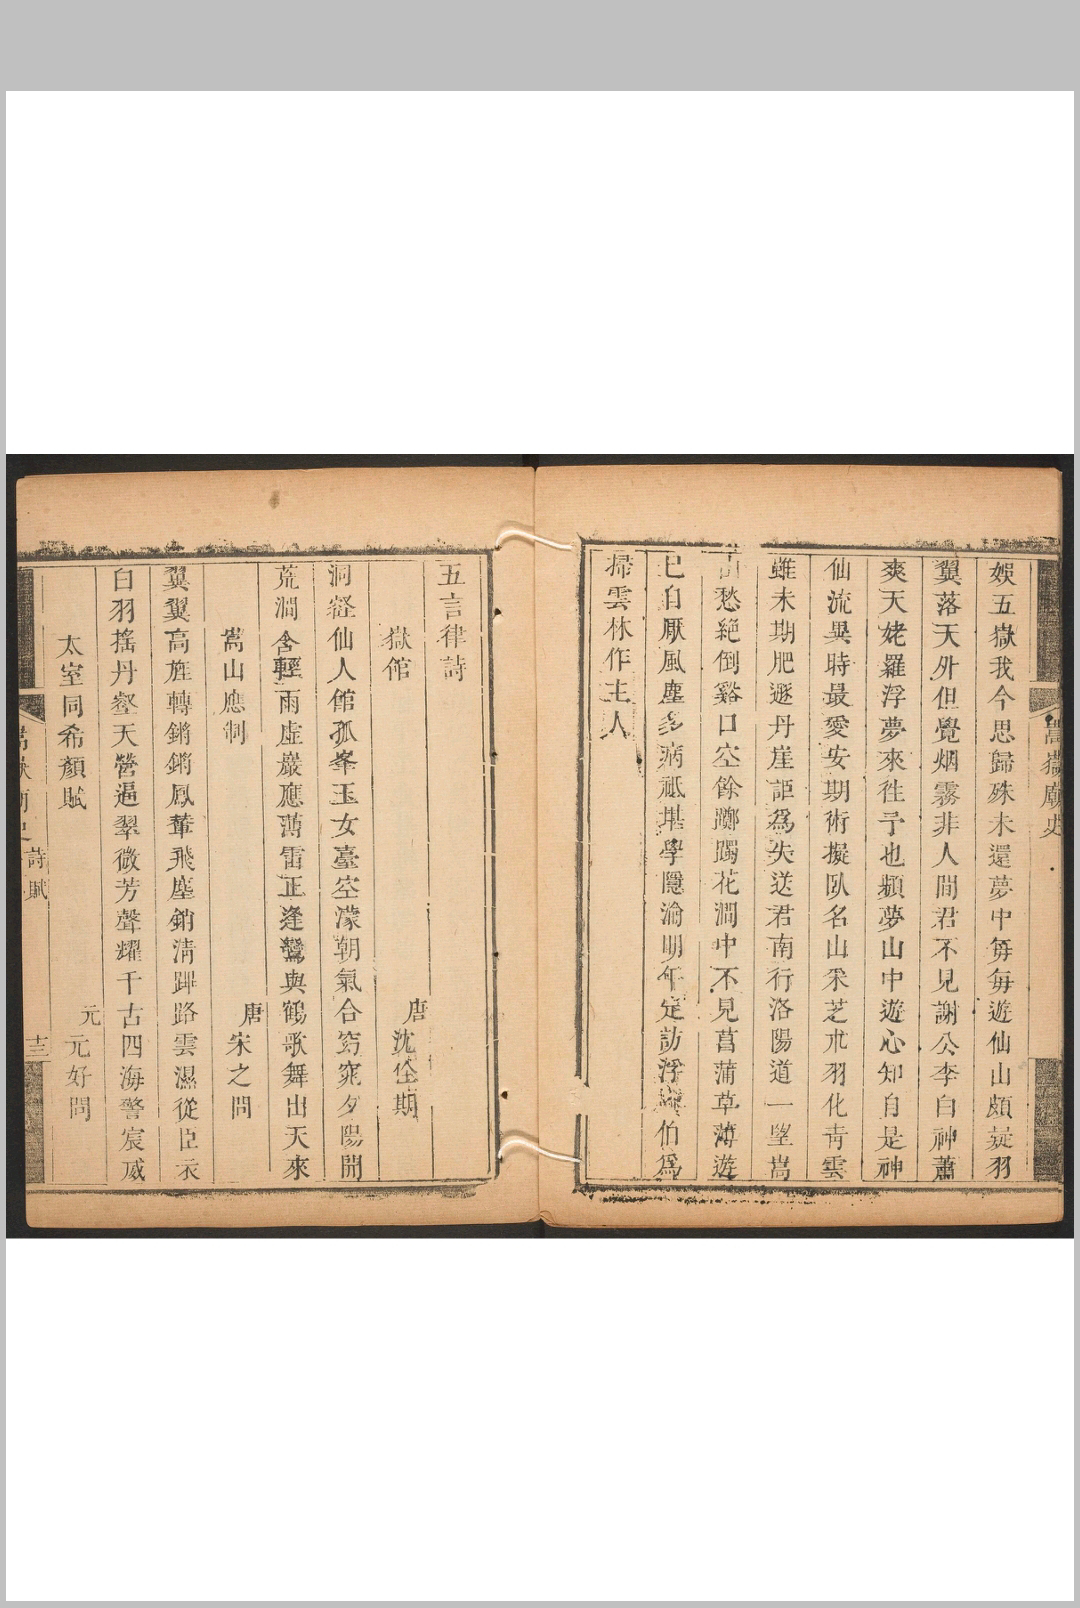 嵩嶽廟史
娛五嶽我今思歸殊未還夢中每每遊仙山頗疑羽
翼落天外但覺烟霧非人間君不見謝公李白神蕭
爽天姥羅浮夢來徃予也頻夢山中遊心知自是神
仙流異時最愛安期術擬臥名山采芝朮羽化青雲
雖未期肥遯丹崖詎爲失送君南行洛陽道一望嵩
愁絶倒谿口空餘躑躅花澗中不見菖蒲草薄遊
已自厭風塵多病祗堪學隱淪明年定訪浮伯爲
掃雲林作主人
五言律詩
嶽館
唐沈佺期
洞壑仙人館孤峯玉女臺空濛朝氣合窈窕夕陽開
荒澗含輕雨虛巖應薄雷正逢鸞與鶴歌舞出天來
嵩山應制
唐宋之問
翼翼高旌轉鏘鏘鳳輦飛塵銷淸蹕路雲濕從臣衣
白羽搖丹壑天營逼翠微芳聲耀千古四海警宸威
太室同希顏賦
元元好問
詩賦
十三